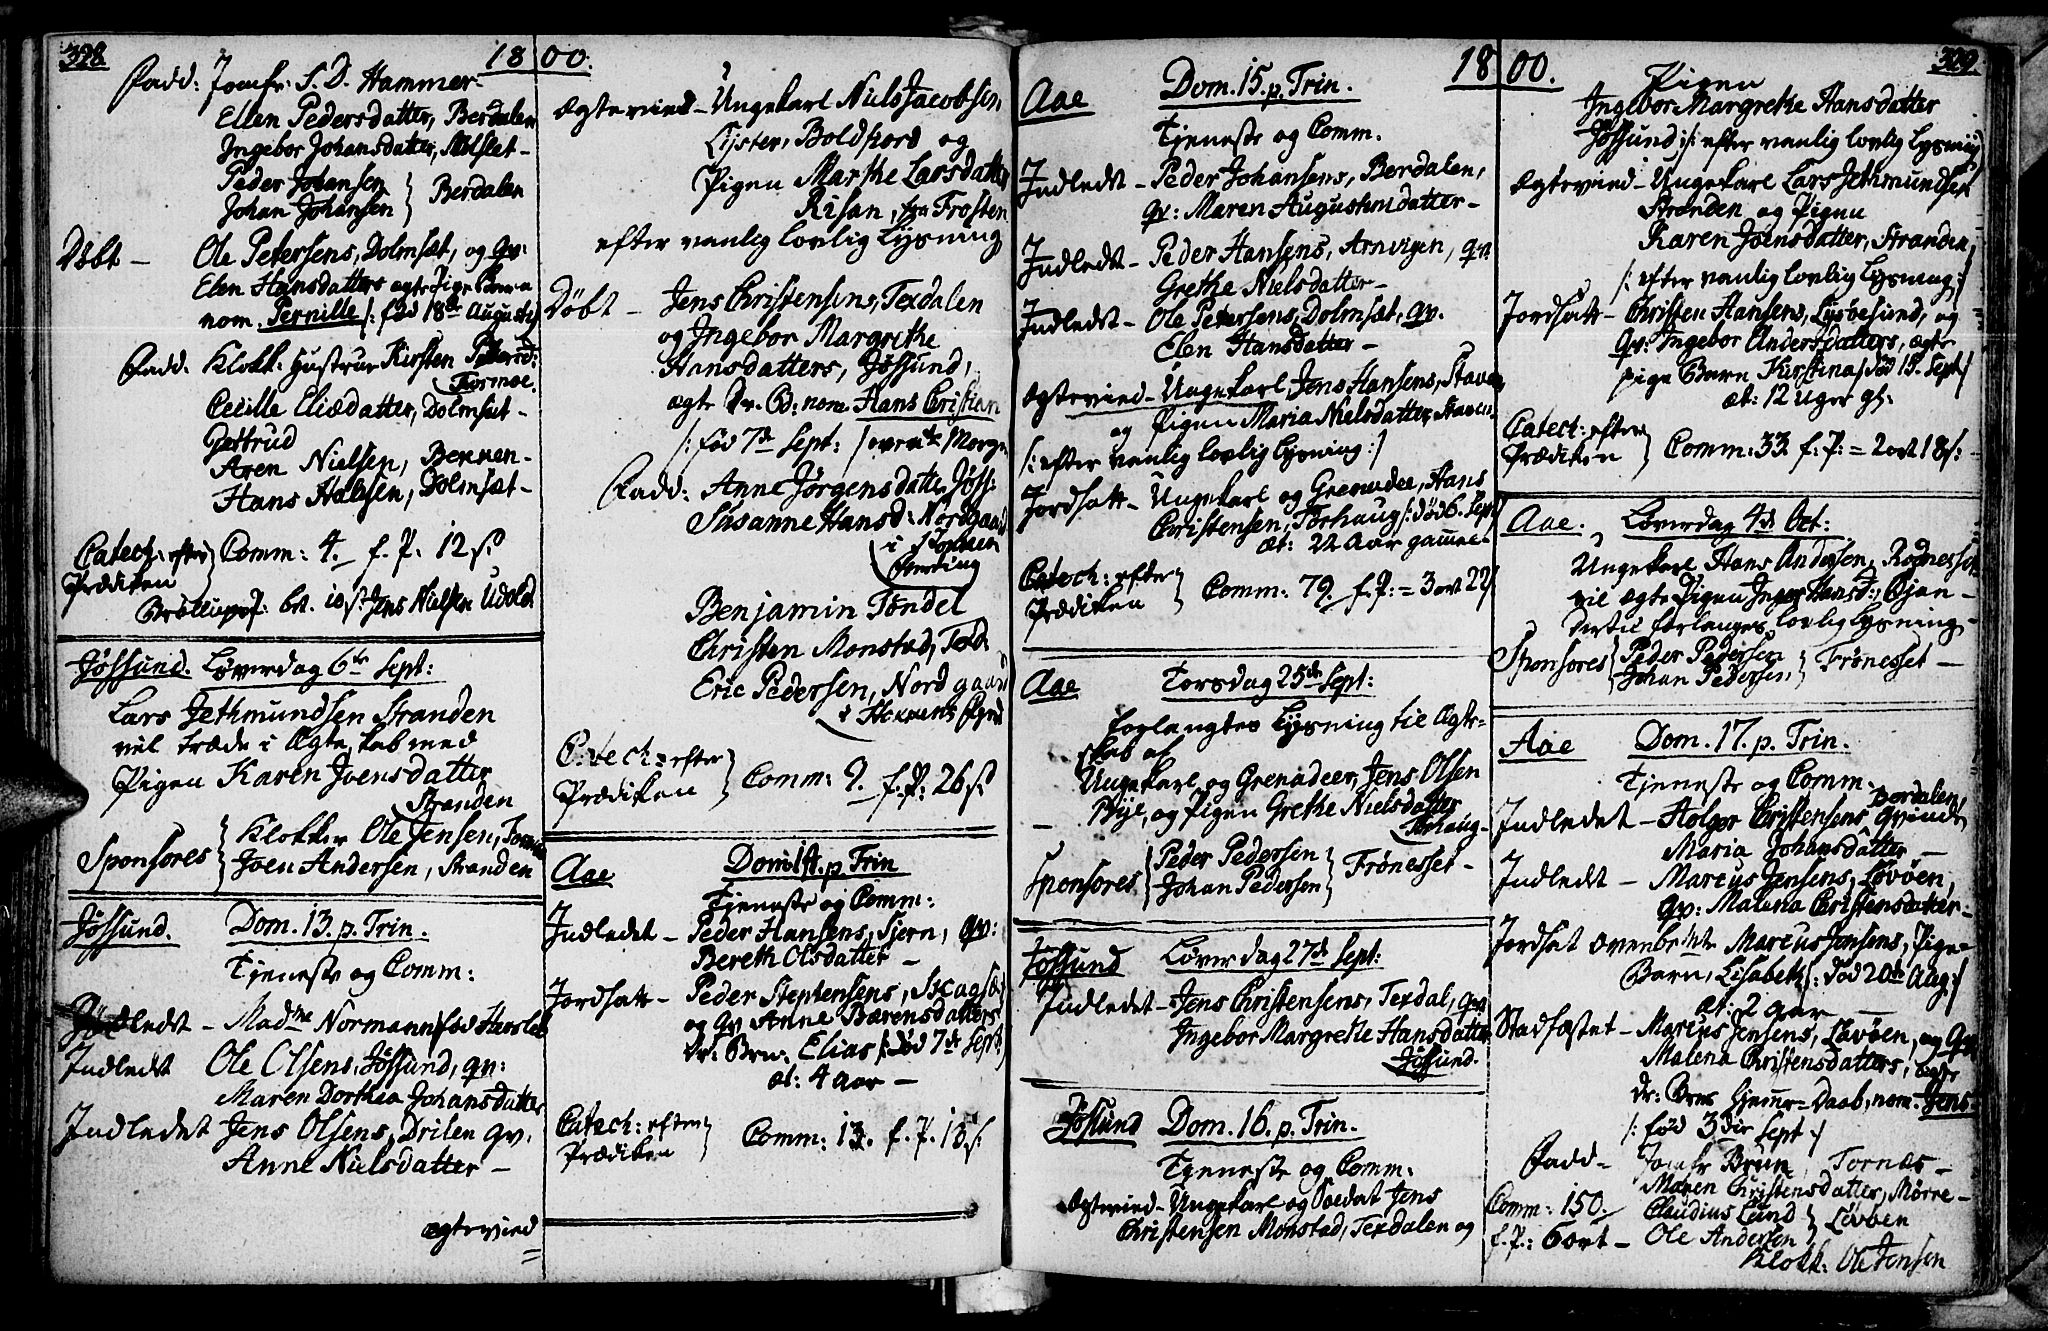 328
18 00.
Fadd: Jomfr: S. D. Hammer
Ellen Pedersdatter, Berdalen
Ingebor Johansdatter,
Peder Johansen } Berdalen
Johan Johansen
Døbt — Ole Petersens, Dolmsæt, og qv:
Elen Hansdatters ægte Pige Barn
nom. Pernille /: fød 18de Augusti
Fadd. Klokk: Hustrue Kirsten Pedersd:
Tormoe.
Cecille Eliædatter, Dolmsæt -
Gertrud
Aren Nielsen, Bennen-
Hans Halsen, Dolmsæt-
Catech: efter } Comm: 4. f. P. 12 s.
Prædiken
Brøllups f: bet. 10 s: Jens Nielsen Udold
Jøssund. Løverdag 6te Sept:
Lars Jethmundsen Stranden
vil træde i Ægteskab med
Pigen Karen Joensdatter
Stranden
Sponsores { Klokker Ole Jensen,
Joen Andersen, Stranden
Jøssund. Dom. 13. p. Trin.
Tjeneste og Comm:
Indledt - Madme Normann fød
Indledt Ole Olsens, Jøssund, qv:
Maren Dorthea Johansdatter
Indledet Jens Olsens, Drilen qv.
Anne Nielsdatter —
Ægtevied
Ægteviede - Ungekarl Niels Jacobsen,
Lister, Boldfiord og
Pigen Marthe Larsdatter
Risan, fra Frosten
efter vanlig lovlig Lysning
Døbt — Jens Christensens, Terdalen
og Ingebor Margrethe
Hansdatters, Jøssund,
ægte Dr. B: nom. Hans Christian
/: fød 7de Sept:
Fadd: Anne Jørgensdatter Jøss:
Susanne Hansd: Nordgaard
i
Benjamin Tøndel
Christen Monstad, Terd.
Eric Pedersen, Nordgaard
i
Catech: efter } Comm: 9. f. P: 26 s.
Prædiken
Aae Dom. 14. p. Trin
Tjeneste og Comm:
Indledet — Peder Hansens, Tjern, qv:
Bereth Olsdatter —
Jordsatt- Peder Stephensens,
og qv Anne Bærensdatters
Dr: Brn. Elias /: død 7de Sept:
æt: 4 aar —
Catech: efter } Comm: 13. f. P. 18 s.
Prædiken
18 00.
329
Aae Dom. 15. p. Trin.
Tjeneste og Comm.
Indledt - Peder Johansens, Berdalen,
qv: Maren Augustinidatter -
Indledt - Peder Hansens, Arnvigen, qv:
Grethe Nielsdatter-
Indledt - Ole Petersens, Dolmsæt, qv.
Elen Hansdatter -
Ægteviede - Ungekarl Jens Hansens, Staven
og Pigen Maria Nielsdatter, Staven.
/: efter vanlig lovlig Lysning :/
Jordsatt - Ungekarl og Grenadeer, Hans
Christensen, Torhaug /: død 6. Sept
æt: 22 Aar gammel-
Catech: efter } Comm: 79. f. P: = 3 ort 22 s
Prædiken
Aae Torsdag 25de Sept:
Forlangtes Lysning til Ægte-
skab af
Ungekarl og Grenadeer, Jens Olsen
Bye, og Pigen Grethe Nielsdatter
Torhaug-
Sponsores { Peder Pedersen } Frønesset -
Johan Pedersen
Jøssund Løverdag 27de Sept:
Indledet - Jens Christensens, Terdal, qv:
Ingebor Margrethe Hansdatter
Jøssund.
Jøssund Dom. 16. p. Trin.
Tjeneste og Comm.
Ægteviede - Ungekarl og Soldat Jens
Christensen Monstad, Terdalen og
Pigen
Ingebor Margrethe Hansdatter
Jøssund /: efter vanlig lovlig Lysning
Ægteviede - Ungekarl Lars Jethmundsen
Stranden og Pigen
Karen Joensdatter, Stranden,
/: efter vanlig lovlig Lysning :/
Jordsatt - Christen Hansens, Lysøesund, og
qv: Ingebor Andersdatters, ægte
Pige Barn Kirstina /: død 15. Sept /
æt: 12 Uger gl:
Catech: efter } Comm: 33. f. P: = 2 ort 18 s: -
Prædiken
Aae. Løverdag 4de Oct:
Ungekarl Hans Andersen,
vil ægte Pigen Inger Hansd:,
Dertil forlanges lovlig Lysning-
Sponsores { Peder Pedersen } Frønesset —
Johan Pedersen,
Aae Dom. 17. p. Trin.
Tjeneste og Comm.
Indledet - Holger Christensens Berdalen, Qvinde
Maria Johansdatter —
Indledet - Marcus Jensens, Løvøen,
qv: Malena Christensdatter-
Jordsat ovenbemte Marcus Jensens, Pige-
Barn, Lisabeth /: død 20de Aug:/
æt: 2 aar —
Stadfæstet - Marcus Jensens, Løvøen, og qv:
Malena Christensdatters, ægte
dr: Brns Hjemme-Daab, nom: Jens
/: fød 3die Sept :/
Fadd- Jomfr Brun, Tornæs -
Maren Christensdatter, Mørre -
Comm: 150. Claudius Lund } Løvøen
f. P.: 6 ort - Ole Andersen
Klokk: Ole Jensen